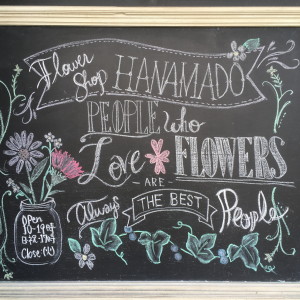 Flower
Shop HANAMADO
PEOPLE who
Love FLOWERS
- ARE -
Always THE BEST People
Open
10-19時
Close(火)